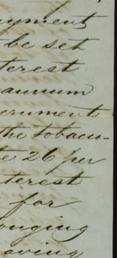 yment
be set
terest
annum
ernment
the tobacu-
te 26 per
terest
for
ouging
oving